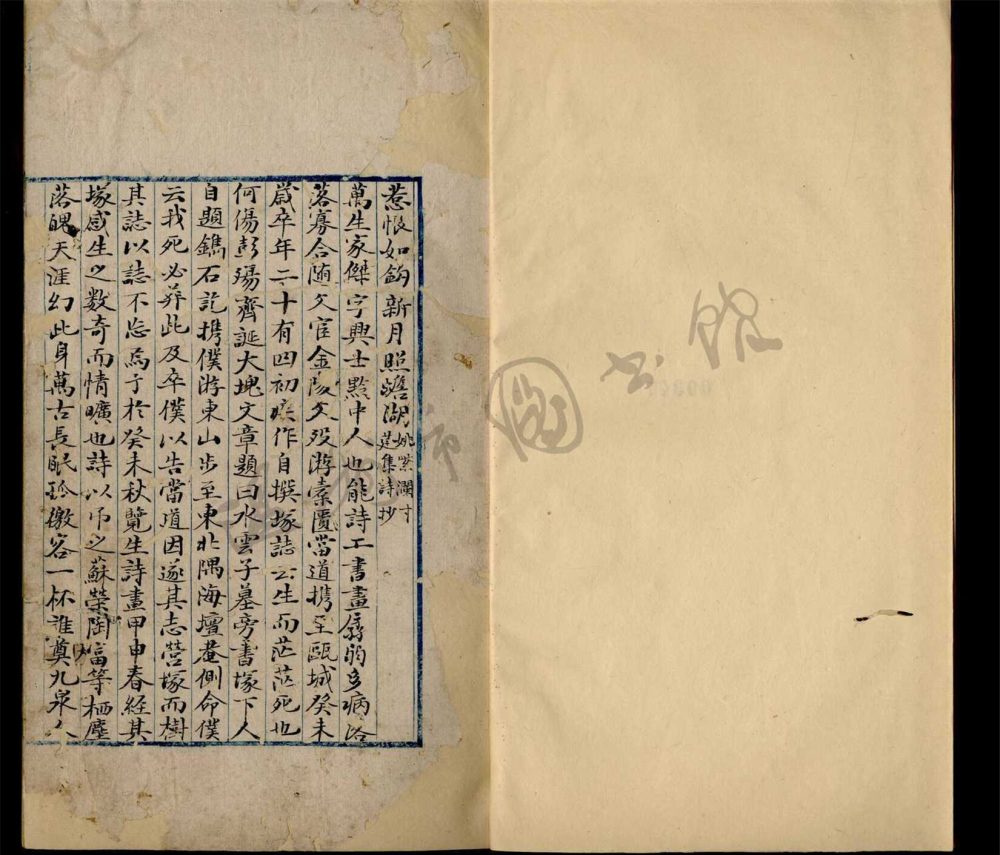 惹恨如鈎新月照蟾湖姚瀾寸
草集詩抄
萬生家傑字興士黔中人也能詩工書畫孱弱多病落
落寡合隨父宦金陵父殁游橐匱當道携至甌城癸未
歲卒年二十有四初疾作自撰塚誌云生而茫茫死也
何傷彭殤齊誕大塊文章題曰水雲子墓旁書塚下人
自題鐫石訖携僕游東山步至東北隅海壇菴側命僕
云我死必葬此及卒僕以告當道因遂其志營塚而樹
其誌以誌不忘焉予於癸未秋覽生詩畫甲申春經其
塚感生之数奇而情曠也詩以吊之蘇榮陶富等栖塵
落魄天涯幻此身萬古長眠玲嶽客一杯誰奠九泉人
圖書館